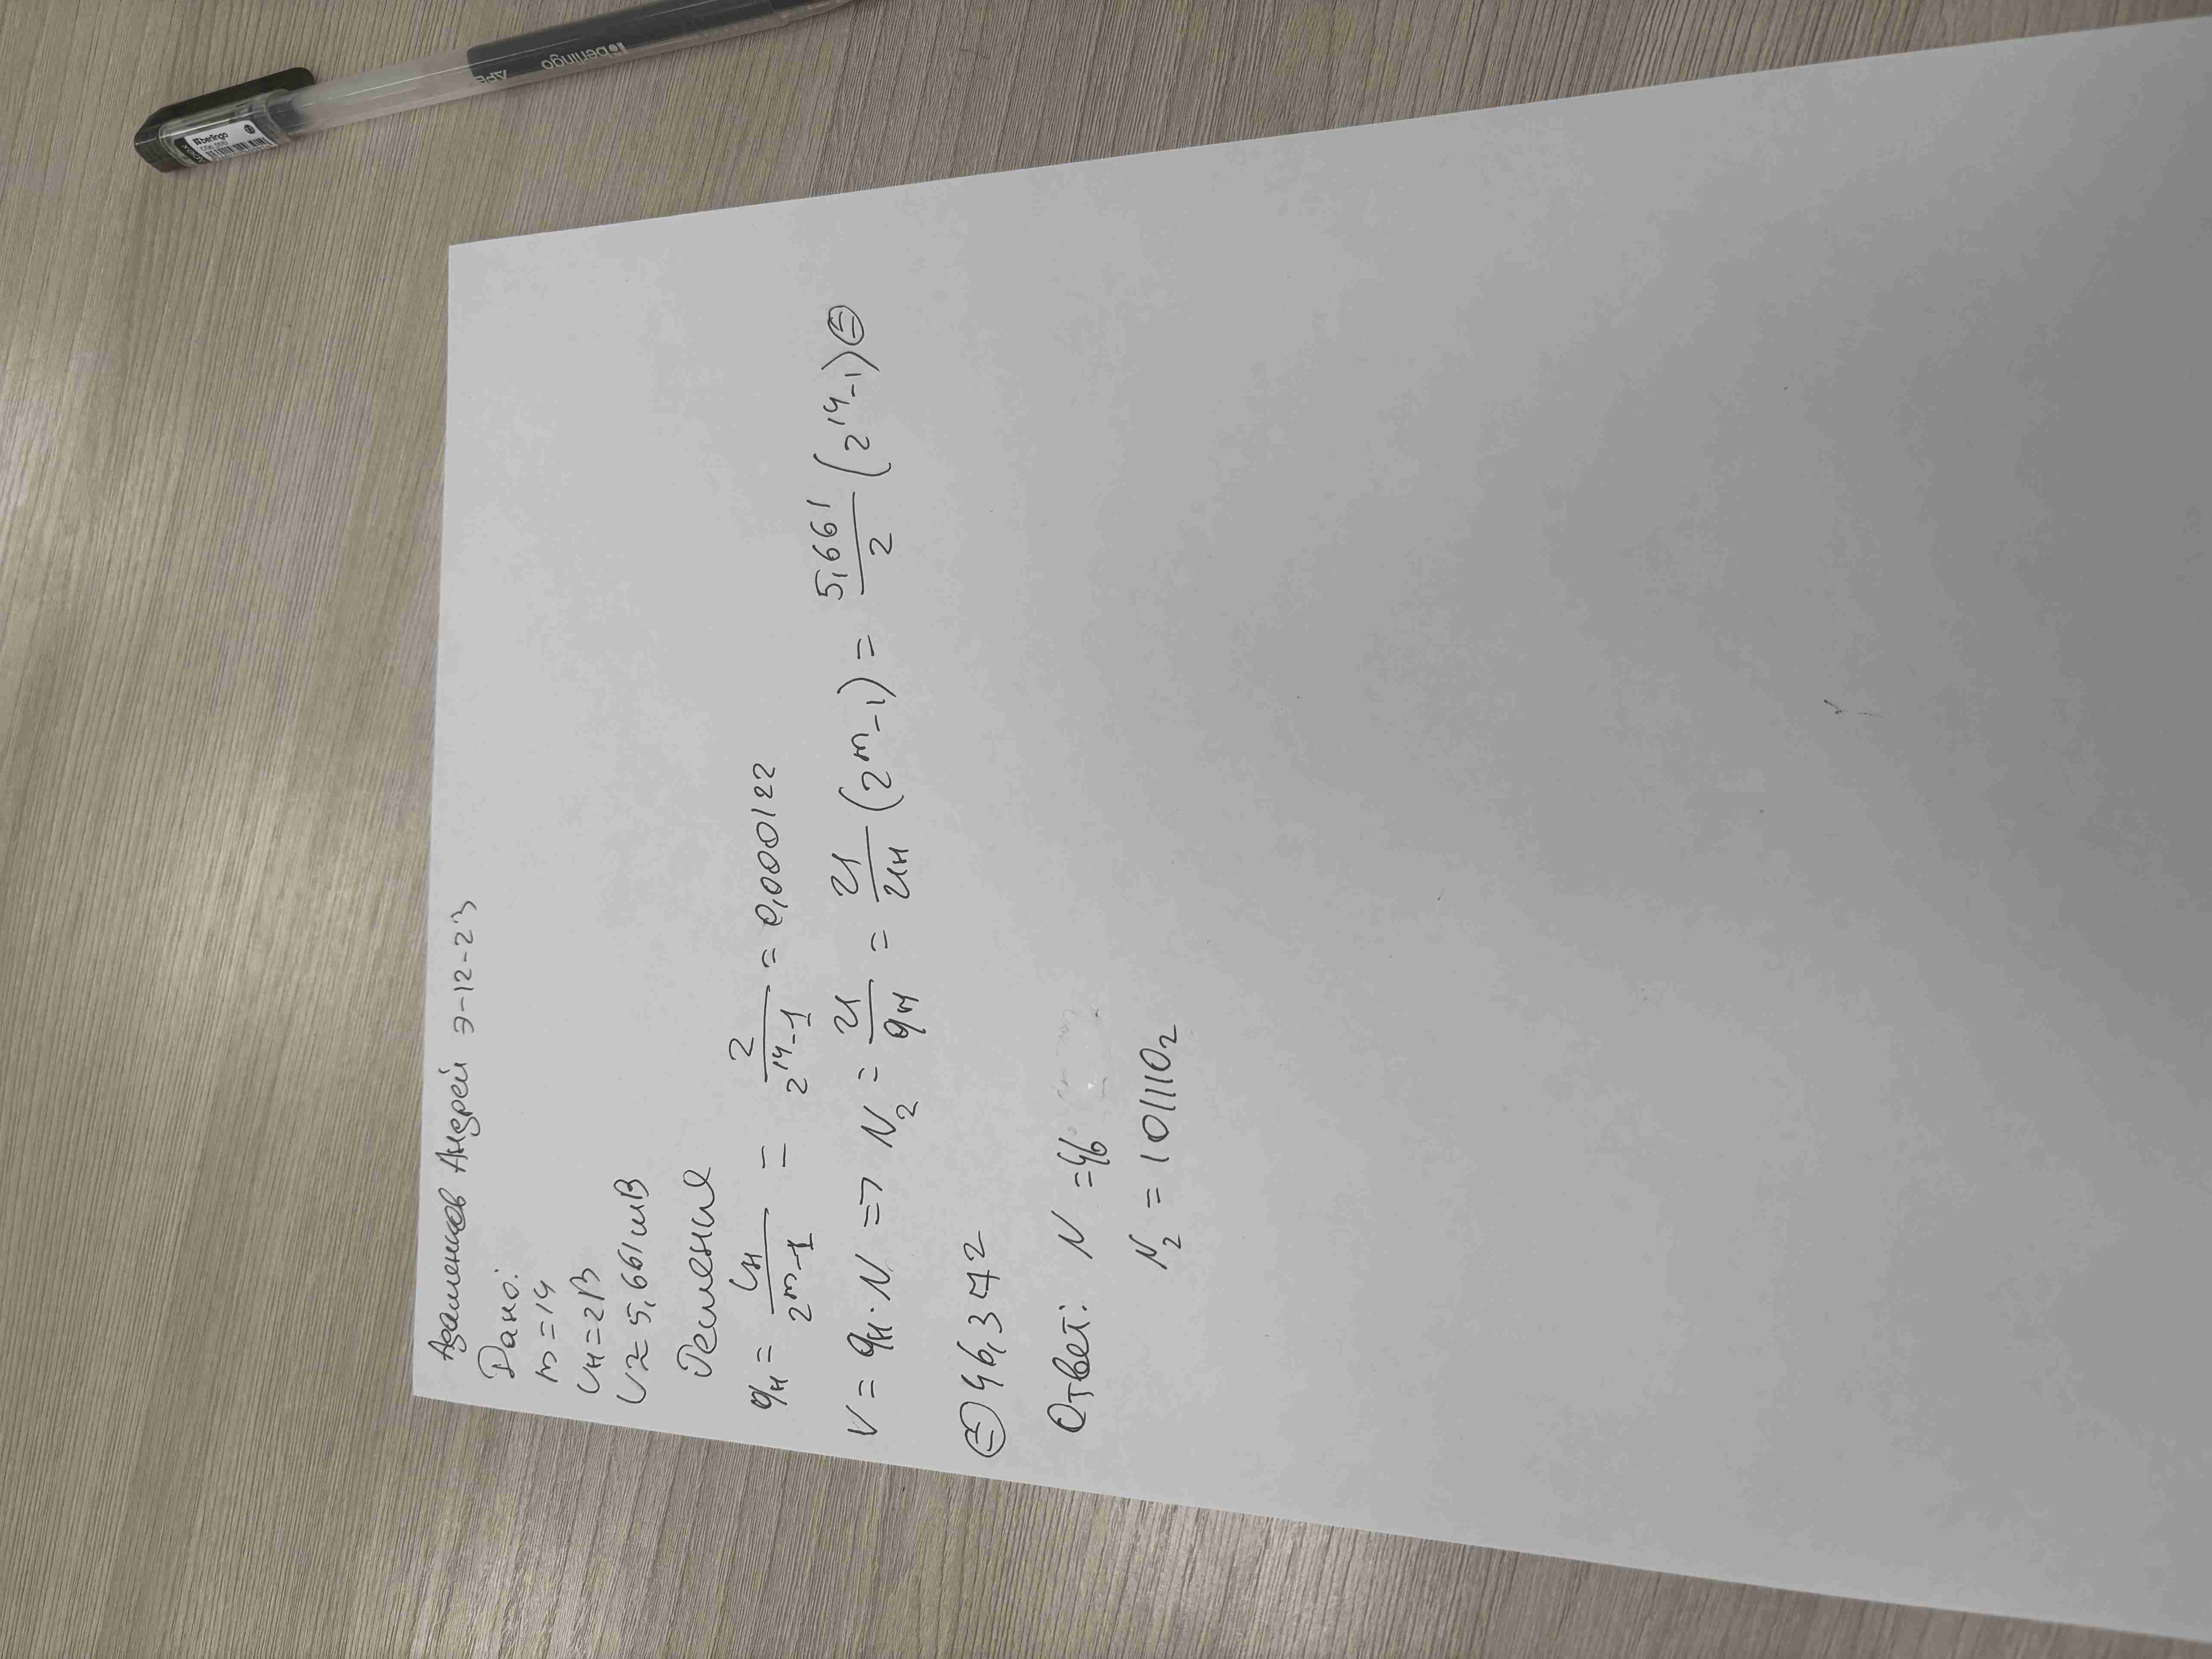 Адаменков Андрей Э-12-23
Дано:
m = 14
Uн = 2В
U = 5,661мВ
Решение
qн = Uн / 2^m-1 = 2 / 2^14-1 = 0,000122
V = qн · N => N₂ = U / qн = U / Uн (2^m-1) = 5,661 / 2 (2^14-1) =
= 46,372
Ответ: N = 46
N₂ = 101110₂
berlingo
berlingo